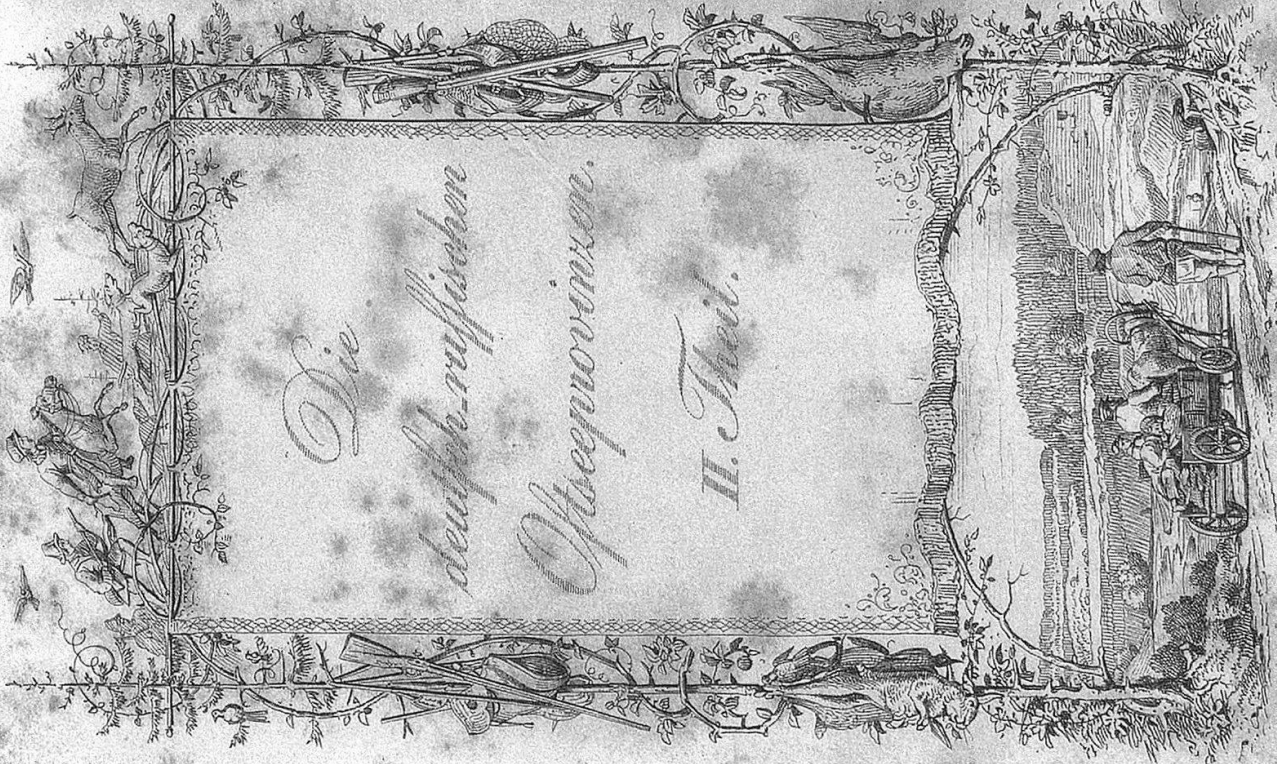 Die
deutsch-russischen
Ostseeprovinzen.
II. Theil.